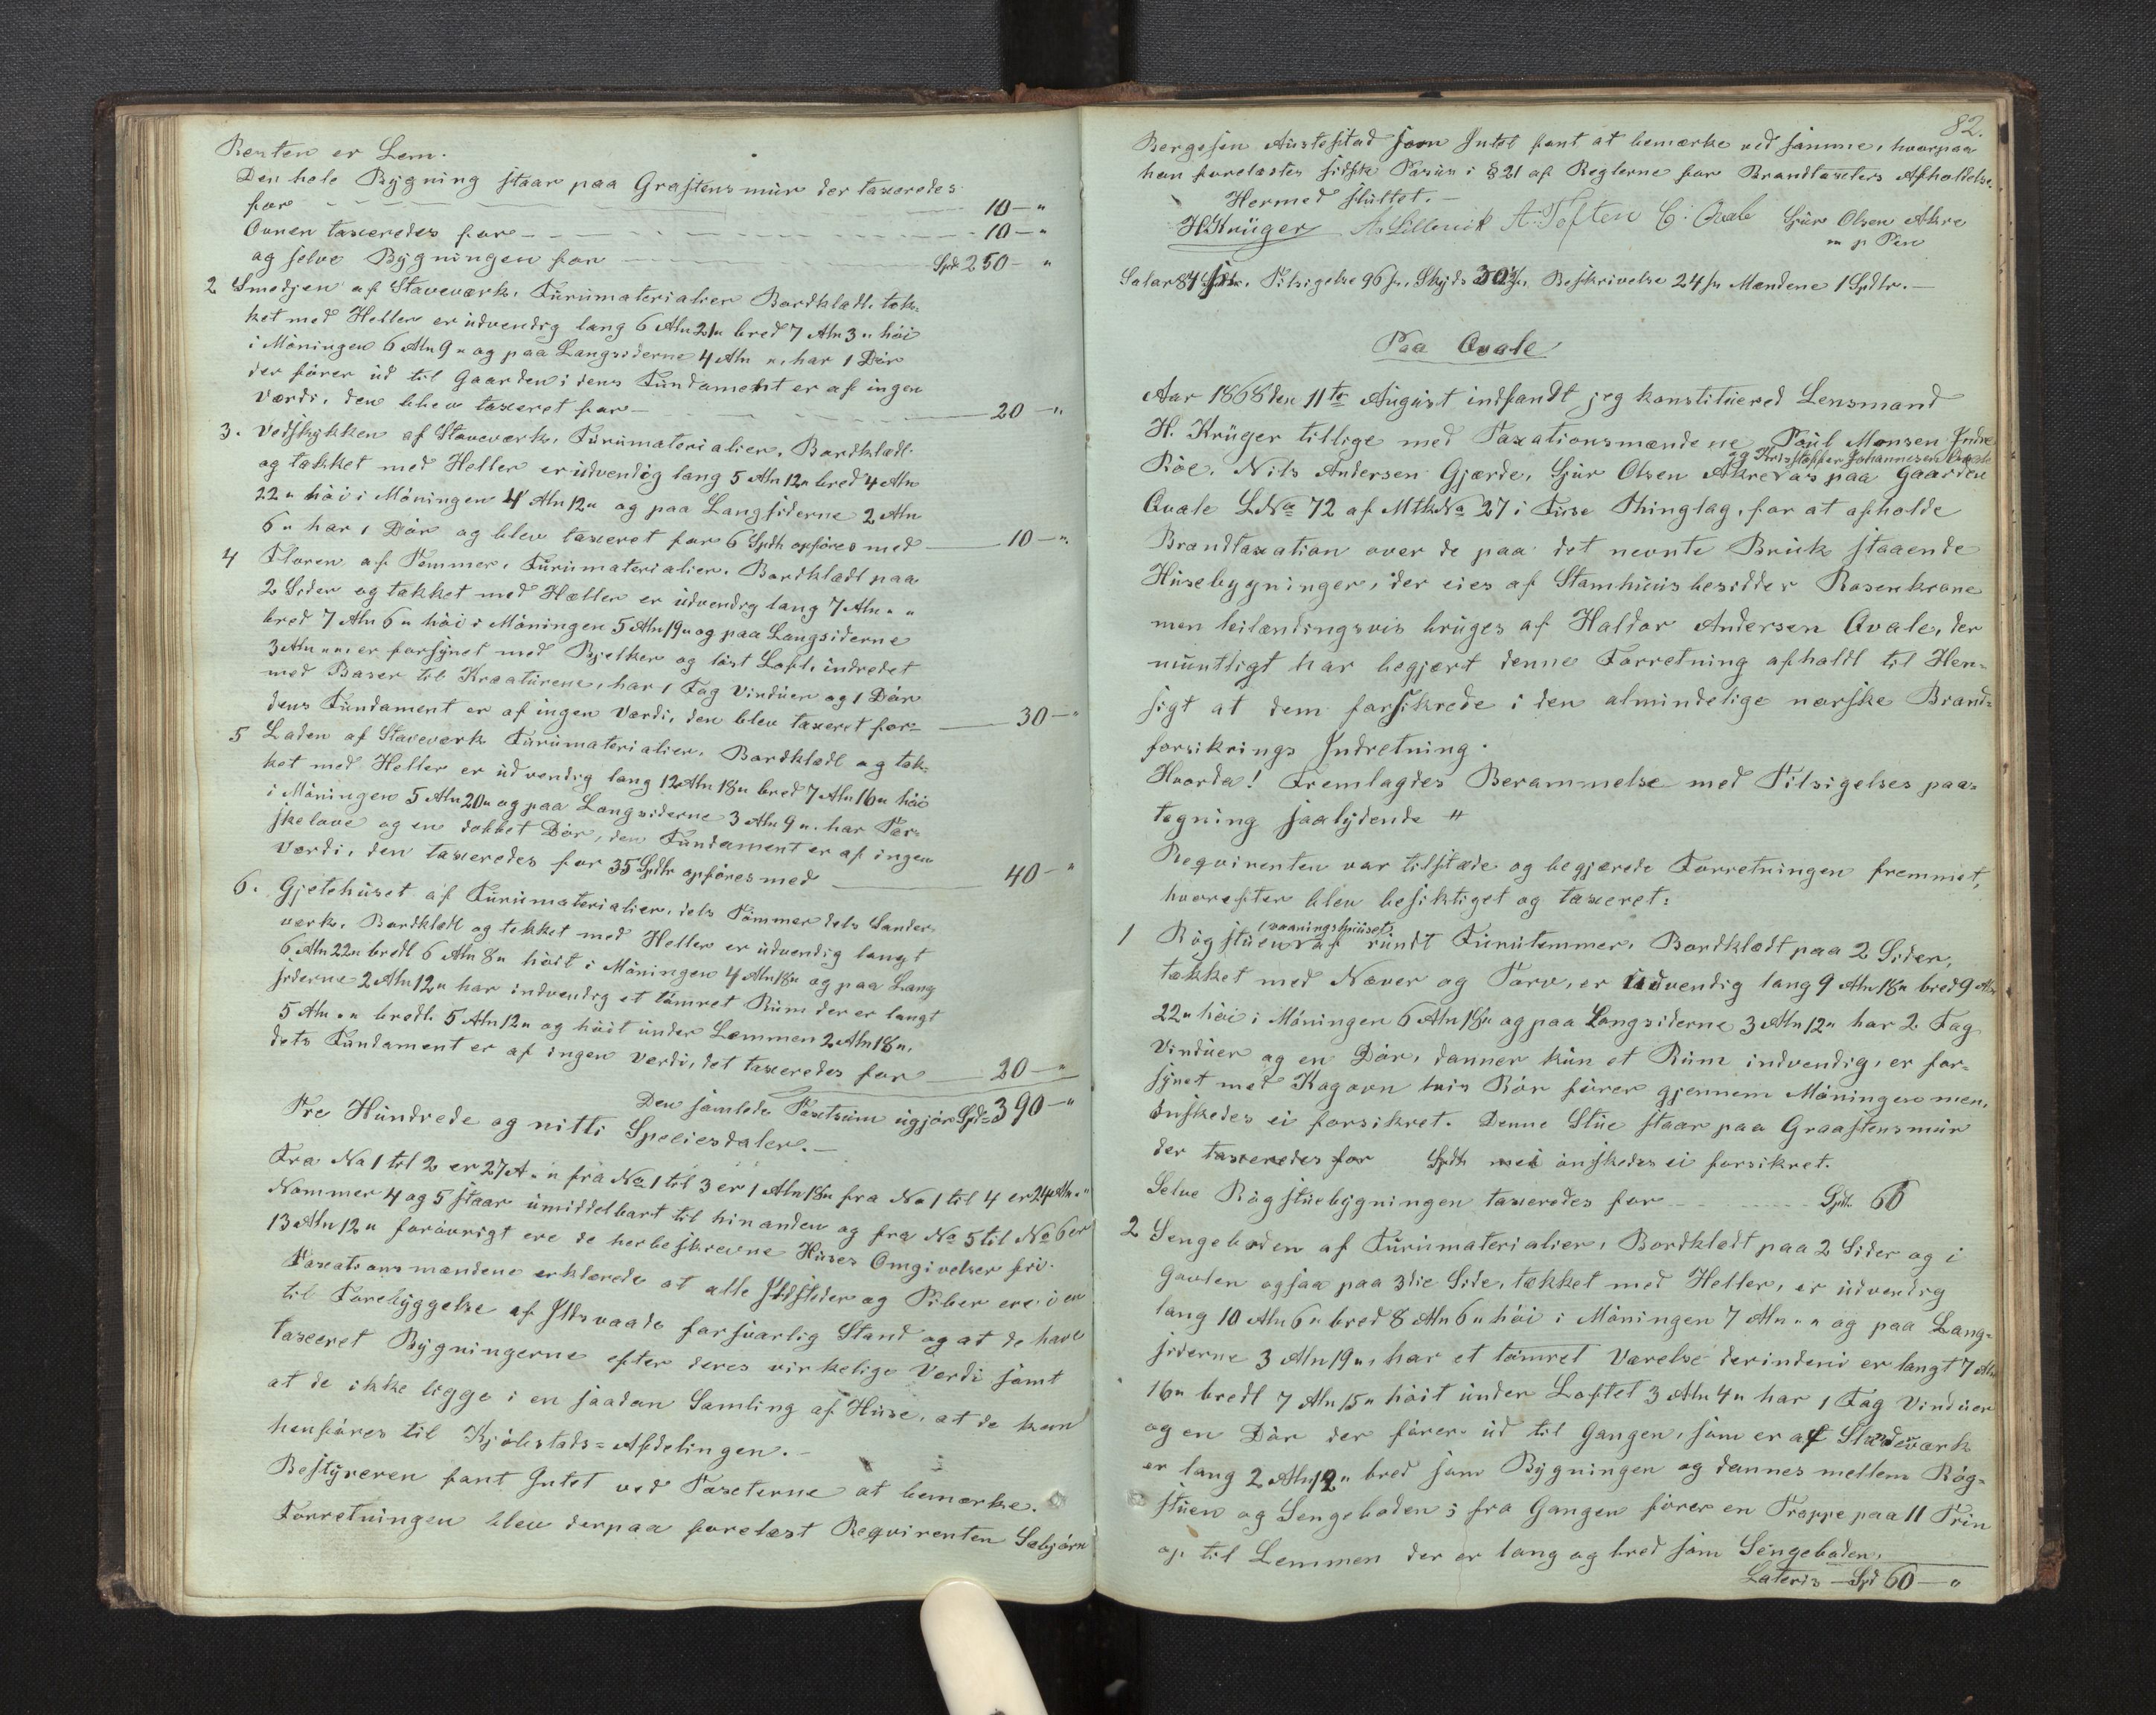 Resten er Lem.
Den hele Bygning staar paa Graastensmúr der taxeredes
for 10 — "
Ovnen taxeredes for — 10 — "
og selve Bygningen for Spd 250 — "
2 Smedjen af Staveværk, Fúrúmaterialier Bordklædt, tæk-
ket med Heller er údvendig lang 6 Aln 21" bred 7 Aln 3" höi
i Möningen 6 Aln 9" og paa Langsiderne 4 Aln ", har 1 Dör
der förer úd til Gaarden i dens Fúndament er af ingen
Værdi, den blev taxeret for — 20 — "
3. Vedskykken af Staveværk, Fúrúmaterialier, Bordklædt
og tækket med Heller er údvendig lang 5 Aln 12" bred 4 Aln
22" höi i Möningen 4 Aln 12" og paa Langsiderne 2 Aln
6" har 1 Dör og blev taxeret for 6 Spdlr opföres med — 10 — "
4 Floren af Tømmer, Fúrúmaterialier, Bordklædt paa
2 Sider og tækket med Hæller er údvendig lang 7 Aln " "
bred 7 Aln 6" höi i Möningen 5 Aln 19" og paa Langsiderne
3 Aln " ", er forsÿnet med Bjelker og löst Loft, indredet
med Baser til Kreatúrene, har 1 Fag Vindúer og 1 Dör
dens Fúndament er af ingen Værdi, den blev taxeret for — 30 — "
5 Laden af Staveværk Fúrúmaterialier, Bordklædt og tæk-
ket med Heller er údvendig lang 12 Aln 18" bred 7 Aln 16" höi
i Möningen 5 Aln 20" og paa Langsiderne 3 Aln 9". har Tær-
skelave og en dobbet Dör, den Fúndament er af ingen
Værdi, den taxeredes for 35 Spdlr opföres med — 40 — "
6. Gjetehúset af Fúrúmaterialier, dels Tömmer dels Sander-
værk, Bordklædt og tekket med Heller er údvendig langt
6 Aln 22" bredt 6 Aln 8" höit i Möningen 4 Aln 18" og paa Lang
siderne 2 Aln 12" har indvendig et tömret Rúm der er langt
5 Aln " " bredt 5 Aln 12" og höit únder Lemmen 2 Aln 18",
dets Fúndament er af ingen Værdi, det taxeredes for — 20 — "
Den samlede Taxtsúm úgjör Spd = 390 — "
Tre Húndrede og nitti Speciesdaler. —
Fra No 1 til 2 er 27 A " " fra No 1 til 3 er 1 Aln 18" fra No 1 til 4 er 24 Aln " "
Nommer 4 og 5 staar úmiddelbart til hinanden og fra No 5 til No 6 er
13 Aln 12" forövrigt ere de her beskrevne Húses Omgivelser fri.
Taxationsmændene erklærede at alle Ildsteder og Piber ere i en
til Forebÿggelse af Ildsvaade forsvarlig Stand og at de have
taxeret Bÿgningerne efter deres virkelige Værdi samt
at de ikke ligge i en saadan Samling af Húse, at de kan
henföres til Kjöbstads = Afdelingen. —
Bestÿreren fant Intet ved Taxterne at bemærke.
Forretningen blev derpaa forelæst Reqvirenten Sæbjörn
82.
Bergesen Aústestad som Intet fant at bemærke ved samme, hvorpaa
han forelæstes sidste Passús i § 21 af Reglerne for Brandtaxters Afholdelse.
Hermed slúttet. —
H. Krüger A. Lillevik A. Toften C. Qvale Sjúr Olsen Akre
m p Pen
Salar 84 s, Tilsigelse 96 s, Skÿds 30 s, Beskrivelse 24 s Mændene 1 Spdlr. —
Paa Qvale
Aar 1868 den 11te Aúgúst indfandt jeg konstitúered Lensmand
H. Krüger tillige med Taxationsmændene Poúl Monsen Indre
og Kristoffer Johannesen Qvale
Röe, Nils Andersen Gjærde, Sjúr Olsen Akre paa Gaarden
Qvale LNo 72 af MtkNo 27 i Fúse Thinglag, for at afholde
Brandtaxation over de paa det nevnte Brúk staaende
Húsebygninger, der eies af Stamhúúsbesidder Rosenkrone
men leilændingsvis brúges af Haldor Andersen Qvale, der
múntligt har begjært denne Forretning afholdt til Hen-
sigt at dem forsikrede i den almindelige norske Brand-
forsikrings Indretning.
Hvorda! Fremlagdes Berammelse med Tilsigelses paa-
tegning saalÿdende "
Reqvirenten var tilstæde og begjærede Forretningen fremmet,
hvorefter blev besiktiget og taxeret:
(vaaningshúúset)
1 Rögstúen af rúndt Fúrútømmer, Bordklædt paa 2 Sider,
tækket med Næver og Torv, er údvendig lang 9 Aln 18" bred 9 Aln
22" höi i Möningen 6 Aln 18" og paa Langsiderne 3 Aln 12" har 2 Fag
Vindúer og en Dör, danner kún et Rúm indvendig, er for-
sÿnet med Kogovn hvis Rör förer gjennem Möningen men,
önskedes ei forsikret. Denne Stúe staar paa Graastensmúr
der taxeredes for Spdlr men önskedes ei forsikret.
Selve Rögstúebÿgningen taxeredes for — Spdlr 60
2 Sengeboden af Fúrúmaterialier, Bordklædt paa 2 Sider og i
Gavlen ogsaa paa 3die Side, tækket med Heller, er údvendig
lang 10 Aln 6" bred 8 Aln 6" höi i Möningen 7 Aln " " og paa Lang-
siderne 3 Aln 19", har et tömret Værelse derindeni er langt 7 Aln
16" bredt 7 Aln 15" höit únder Loftet 3 Aln 4" har 1 Fag Vindúer
og en Dör der förer úd til Gangen, som er af Stadeværk
er lang 2 Aln 12" bred som Bÿgningen og dannes mellem Rög-
stúen og Sengeboden; fra Gangen förer en Trappe paa 11 Trin
op til Lemmen der er lang og bred som Sengeboden,
Lateris — Spd 60 — "